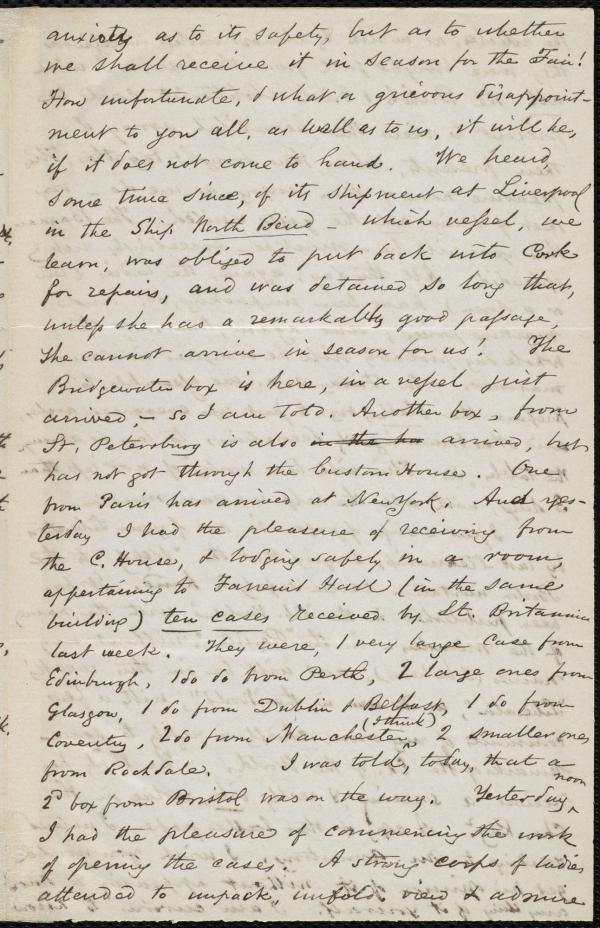 anxiety as to its safety, but as to whether
we shall receive it in season for the Fair!
How unfortunate, & what a grievous disappoint-
ment to you all, as well as to us, it will be,
if it does not come to hand. We heard,
some time since, of its shipment at Liverpool
in the Ship North Bend – which vessel, we
learn, was obliged to put back into Cork
for repairs, and was detained so long that,
unless she has a remarkably good passage,
she cannot arrive in season for us! The
Bridgewater box is here, in a vessel just
arrived, – so I am told. Another box, from
St. Petersburg is also in the ha arrived, but
has not got through the Custom House. One
from Paris has arrived at New York. And yes-
terday I had the pleasure of receiving from
the C. House, & lodging safely in a room,
appertaining to Faneuil Hall (in the same
building) ten cases received by St. Britannia
last week. They were, 1 very large case from
Edinburgh, 1 do do from Perth, 2 large ones from
Glasgow, 1 do from Dublin & Belfast, 1 do from
Coventry, 2 do from Manchester (I think) 2 smaller ones
from Rochdale. I was told, today, that a
2d box from Bristol was on the way. Yesterday noon
I had the pleasure of commencing the work
of opening the cases. A strong corps of ladies
attended to unpack, unfold, view & admire